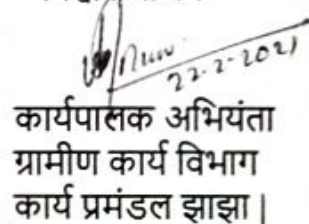 22-2-2021
कार्यपालक अभियंता
ग्रामीण कार्य विभाग
कार्य प्रमंडल झाझा |